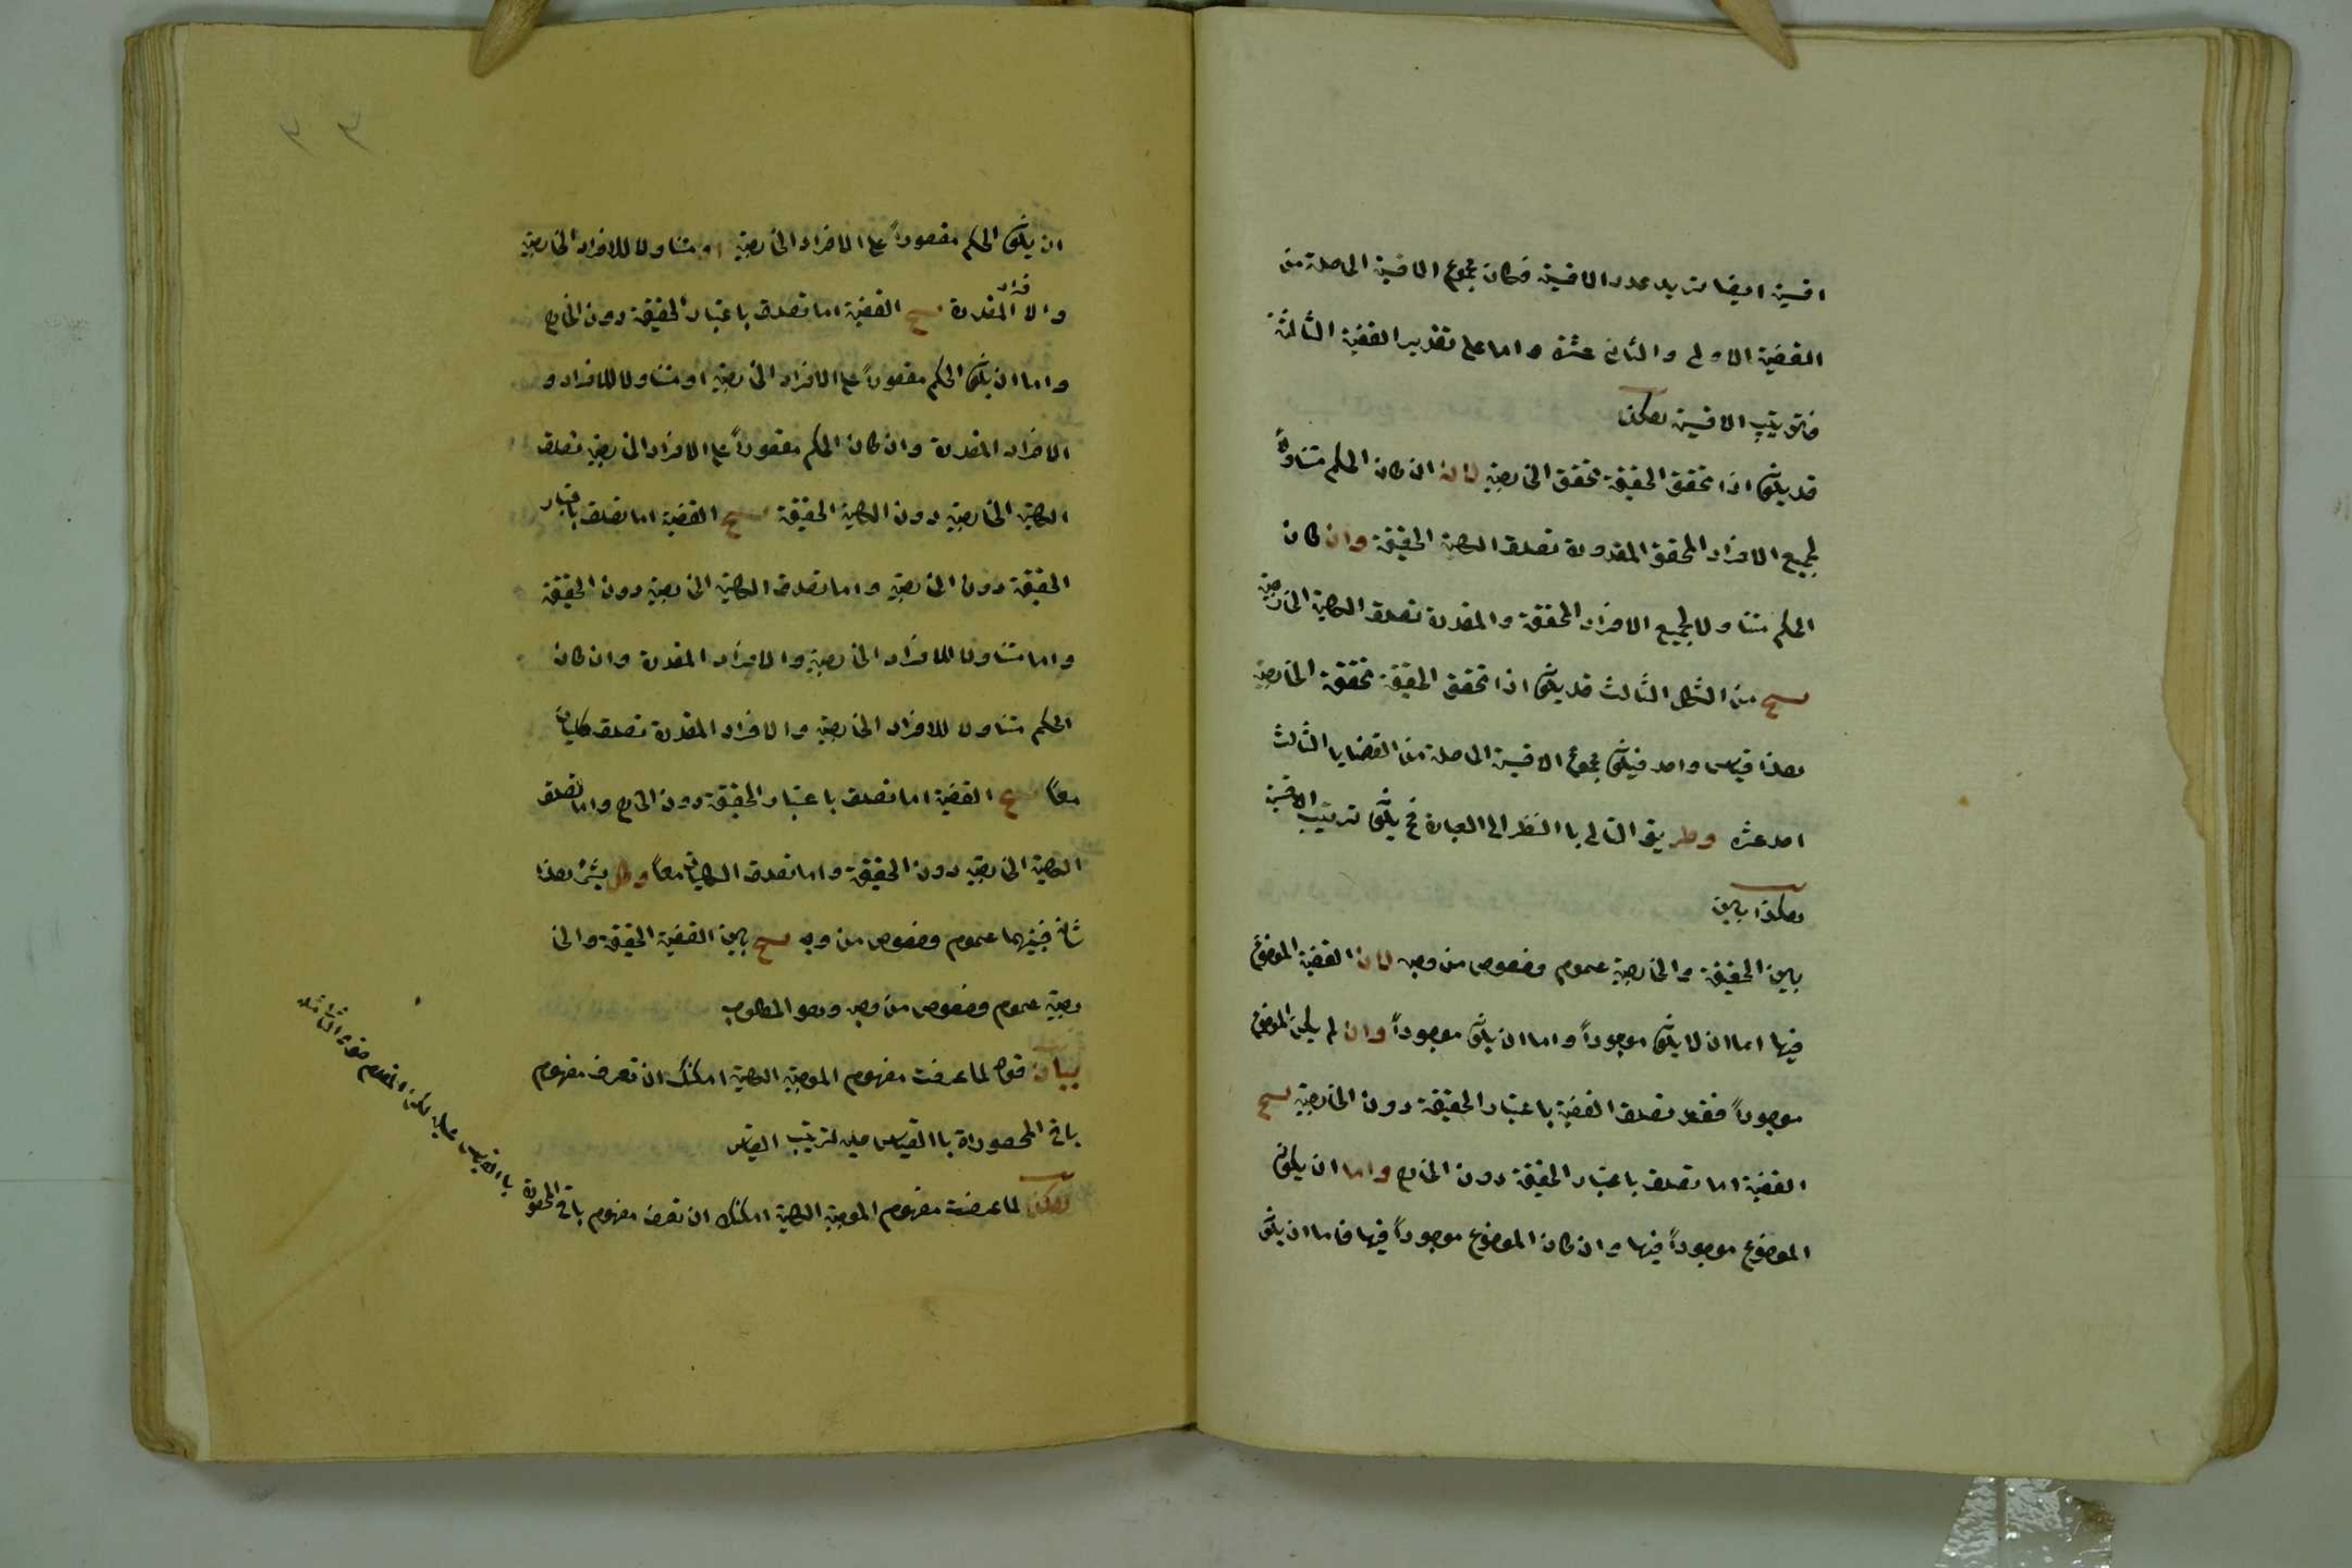 اقسية ايضا تزيد عدد الاقسية فكان مجموع الاقسية الحاصلة من
القضية الاولى والثانى عشرة واما على تقدير القضية الثالثة
فترتيب الاقسية هكذا
قد يكون اذا تحقق الحقيقة تحقق الخارجية لانه ان كان الحكم متناولاً
لجميع الافراد المحقق المقدورة تصدق الكلية الحقيقة وان كان
الحكم متناولا لجميع الافراد المحققة والمقدرة تصدق الكلية الخارجية
ينتج من الشكل الثالث قد يكون اذا تحقق الحقيقة تحققة الخارجية
هذا قياس واحد فيكون مجموع الاقسية الحاصلة من القضايا الثالث
احد عشره وطريق التالى با النظر الى العبارة فح يكون ترتيب الاقسية
هكذا بين
بين الحقيقة والخارجية عموم وخصوص من وجه لان القضية الموضوع
فيها اما ان لا يكون موجوداً واما ان يكون موجوداً وان لم يكن الموضوع
موجوداً فقد تصدق القضية باعتبار الحقيقة دون الخارجية ينتج
القضية اما تصدق باعتبار الحقيقة دون الخارج واما ان يكون
الموضوع موجوداً فيها وان كان الموضوع موجوداً فيها فاما ان يكون
٣٣
ان يكون الحكم مقصوراً على الافراد الخارجية او متناولا للافراد الخارجية
والافراد المقدرة ينتج القضية اما تصدق باعتبار الحقيقة دون الخارج
واما ان يكون الحكم مقصوراً على الافراد الخارجية او متناولا للافراد و
الافراد المقدرة وان كان الحكم مقصوراً على الافراد الخارجية تصدق
الكلية الخارجية دون الكلية الحقيقة ينتج القضية اما تصدق باعتبار
الحقيقة دون الخارجية واما تصدق الكلية الخارجية دون الحقيقة
واما متناولا للافراد الخارجية والافراد المقدرة وان كان
الحكم متناولا للافراد الخارجية والافراد المقدرة تصدق كليتان
معاً ينتج القضية اما تصدق باعتبار الحقيقة دون الخارج واما تصدق
الكلية الخارجية دون الحقيقة واما تصدق الكليتان معاً وكل هذا
شانه فبينهما عموم وخصوص من وجه ينتج بين القضية الحقيقة والخا
رجية عموم وخصوص من وجه وهو المطلوب
بيان قوله لما عرفت مفهوم الموجبة الكلية امكنك ان تعرف مفهوم
باقى المحصوراة با القياس عليه لترتيب القياس
هكذا لما عرفت مفهوم الموجبة الكلية امكنك ان تعرف مفهوم باقى المحصورة
با القياس عليه لكن المقدم حق والتالى مثله